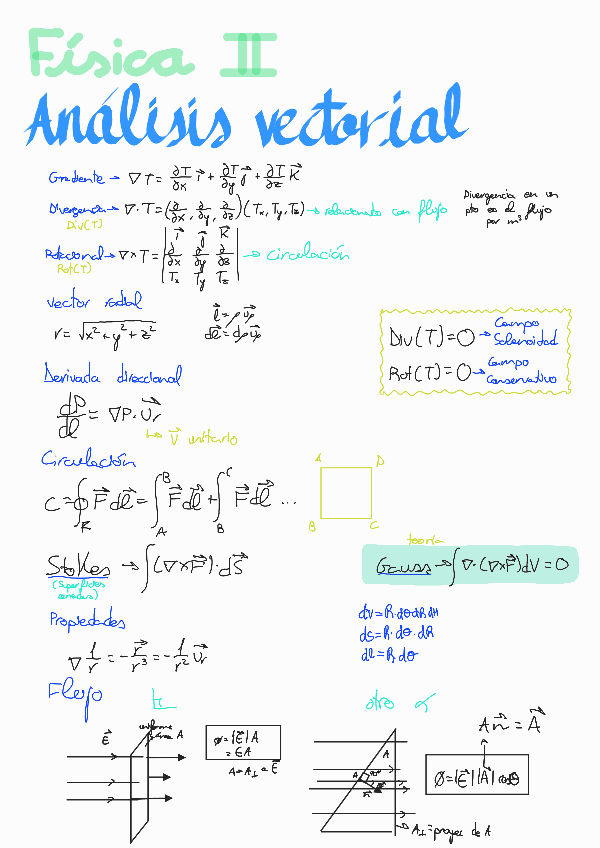 Física II
Análisis vectorial
Gradiente → ∇T = ∂T/∂x i⃗ + ∂T/∂y j⃗ + ∂T/∂z k⃗
Divergencia → ∇·T = (∂/∂x, ∂/∂y, ∂/∂z)(Tx, Ty, Tz) → relacionado con flujo
Div(T)
Divergencia en un
pto es el flujo
por m³
Rotacional → ∇×T = | i⃗ j⃗ k⃗ |
| ∂/∂x ∂/∂y ∂/∂z | → circulación
| Tx Ty Tz |
Rot(T)
vector radial
r = √x² + y² + z²
l⃗ = ρ u⃗ρ
dl⃗ = dρ u⃗ρ
Div(T) = 0 → Campo
Solenoidad
Rot(T) = 0 → Campo
Conservativo
Derivada direccional
dP/dl = ∇P · u⃗r
↳ v⃗ unitario
Circulación
C = ∮ F⃗ dl⃗ = ∫ F⃗ dl⃗ + ∫ F⃗ dl⃗ ...
R A B B C
A D
B C
Stokes → ∫(∇×F⃗)·dS⃗
(Superficies
cerradas)
teoría
Gauss → ∫ ∇·(∇×F⃗)dV = 0
Propiedades
∇ 1/r = - r⃗/r³ = - 1/r² u⃗r
dV = R·dθ dR dH
dS = R·dθ·dR
dl = R dθ
Flujo
otro ∝
E⃗
uniforme
A
Φ = |E⃗| A
= EA
A = A⊥ a E⃗
A
A
A⊥ = proyec de A
A n⃗ = A⃗
Φ = |E⃗| |A⃗| cosθ